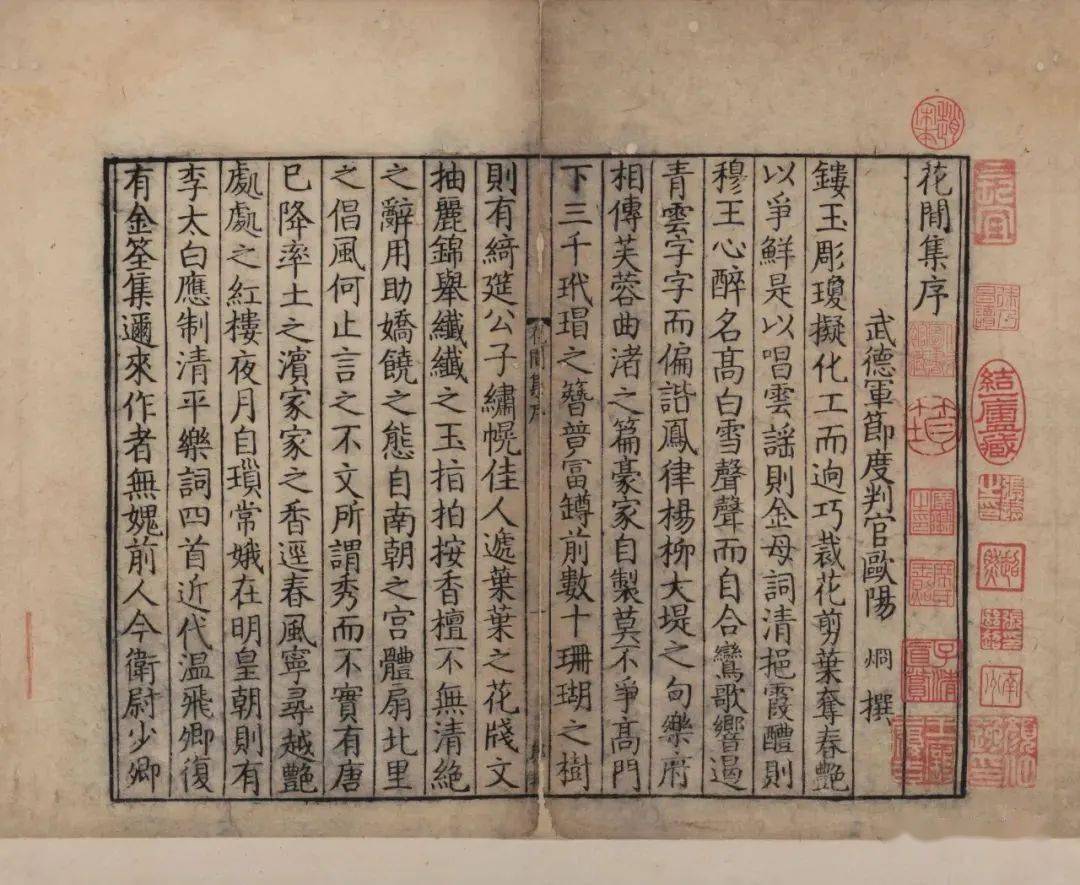 花閒集序
武德軍節度判官歐陽 烱 撰
鏤玉彫瓊擬化工而迥巧裁花剪葉奪春豔
以爭鮮是以唱雲謠則金母詞清挹霞醴則
穆王心醉名高白雪聲聲而自合鸞歌響遏
青雲字字而偏諧鳳律楊柳大堤之句樂府
相傳芙蓉曲渚之篇豪家自製莫不爭高門
下三千玳瑁之簪競富罇前數十珊瑚之樹
則有綺筵公子繡幌佳人遞葉葉之花牋文
抽麗錦舉纖纖之玉指拍按香檀不無清絶
之辭用助嬌饒之態自南朝之宮體扇北里
之倡風何止言之不文所謂秀而不實有唐
已降率土之濱家家之香逕春風寧尋越豔
處處之紅樓夜月自鎖常娥在明皇朝則有
李太白應制清平樂詞四首近代温飛卿復
有金筌集邇來作者無媿前人今衛尉少卿
花間集序
結廬藏
子清真賞